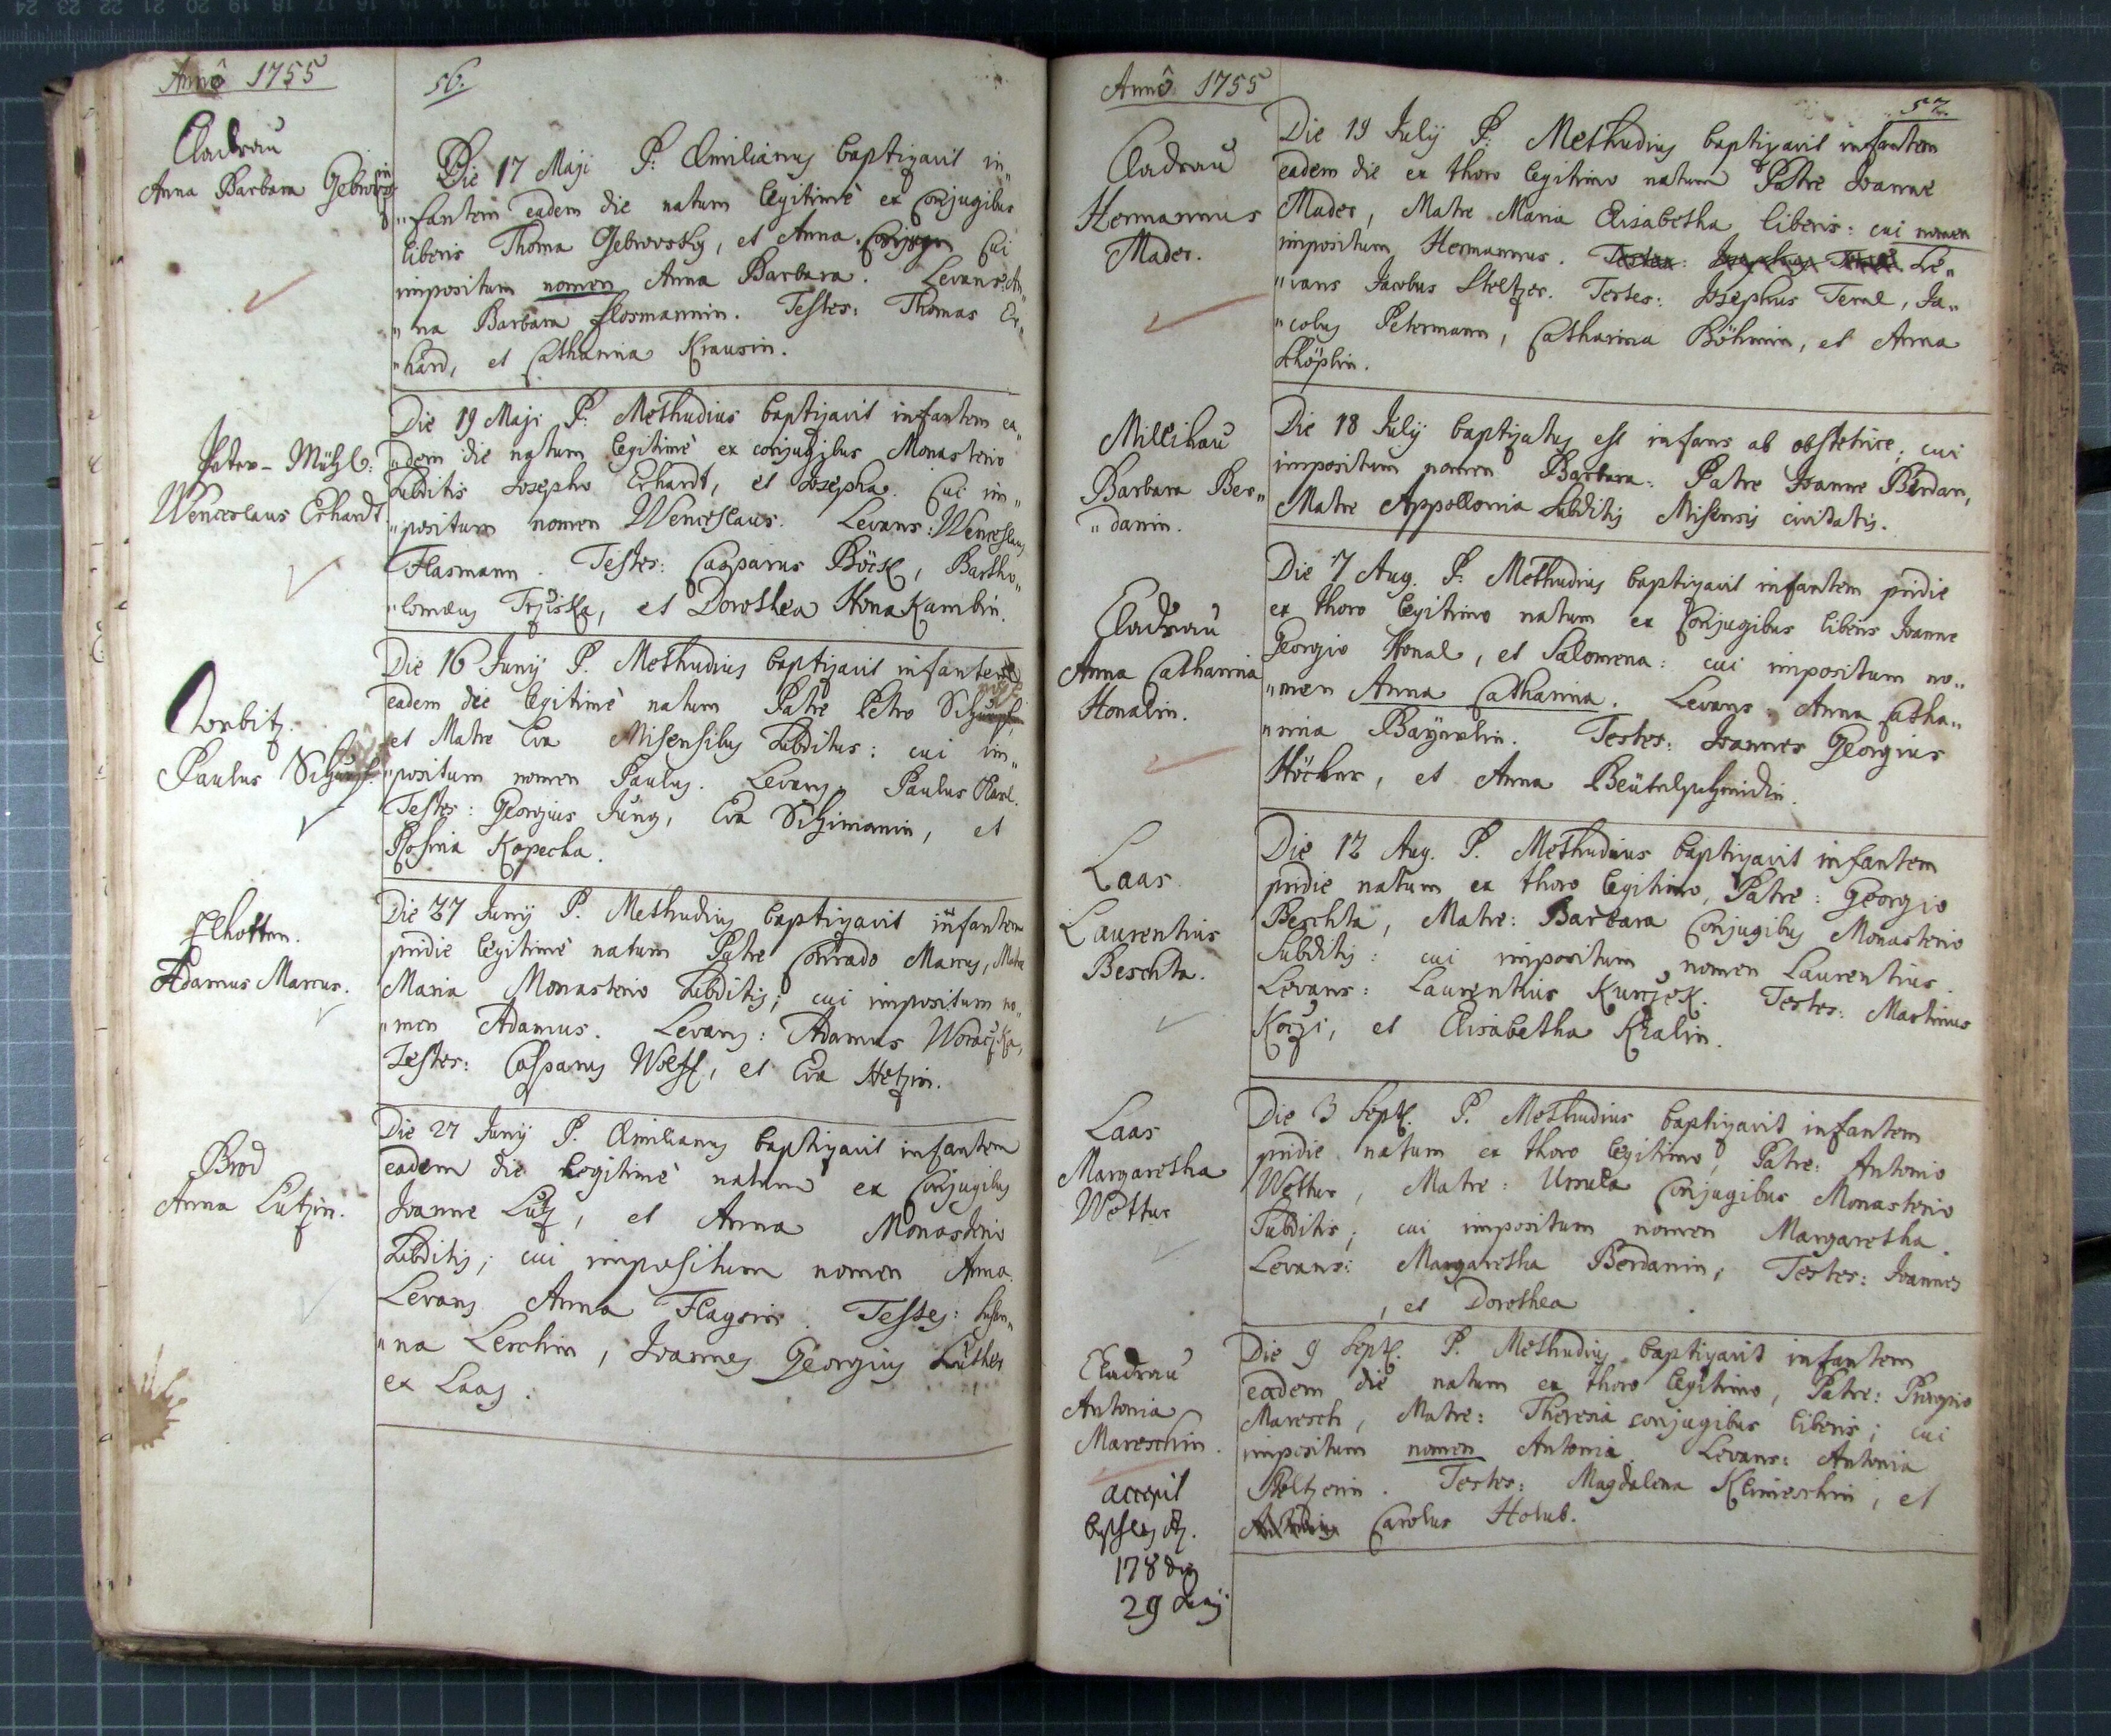 Annô 1755
56.
Cladrau
Anna Barbara Gebrovs
Die 17 Maji P: Æmilianus baptizavit in„
„fantem eadem die natum legitimè ex Conjugibus
liberis Thoma Gebrovsky, et Anna. Cui
impositum nomen Anna Barbara. Levans: An„
„na Barbara Flosmannin. Testes: Thomas Er„
„hard, et Catharina Krausin.
Peter-Mühl:
Wenceslaus Erhardt
Die 19 Maji P: Methudius baptizavit infantem ea„
„dem die natum legitimè ex conjugibus Monasterio
subditis Josepho Erhardt, et Josepha. Cui im„
„positum nomen Wenceslaus. Levans: Wenceslaus
Flasmann. Testes: Casparus Böckl, Bartho„
„lomæus Trziska, et Dorothea
Paulus
Die 16 Junij P. Methudius baptizavit infantem
eadem die legitimè natum Patre Petro
et Matre Eva Misensibus subditus: cui im„
„positum nomen Paulus. Levans Paulus
Testes: Georgius Jung, Eva Schimanin, et
Rosina Kopecka.
Elhotten.
Adamus Marcus.
Die 27 Junij P. Methudius baptizavit infantem
pridie legitimè natum Patre Conrado Marcus, Matre
Maria Monasterio subditis; cui impositum no„
„men Adamus. Levans: Adamus
Testes: Casparus Wolff, et Eva Hetzin.
Brod
Anna Lutzin.
Die 27 Junij P. Æmilianus baptizavit infantem
eadem die legitimè natum ex Conjugibus
Joanne Lutz, et Anna Monasterio
subditis; cui impositum nomen Anna.
Levans Anna Testes: Susan„
„na Lerchin, Joannes Georgius
ex Laas.
Annô 1755
57.
Cladrau
Hermannus
Mader.
Die 19 July P: Methudius baptizavit infantem
eadem die ex thoro legitimo natum Patre Joanne
Mader, Matre Maria Elisabetha liberis: cui nomen
impositum Hermannus. Le„
„vans Jacobus Stoltzer. Testes: Josephus Teml, Ja„
„cobus Petermann, Catharina Böhmin, et Anna
Schöplin.
Millikau
Barbara Ber„
„danin.
Die 18 July baptizatus est infans ab obstetrice; cui
impositum nomen Barbara: Patre Joanne Berdan,
Matre Appollonia subditis Misensis civitatis.
Cladrau
Anna Catharina
Honalin.
Die 7 Aug. P: Methudius baptizavit infantem pridie
ex thoro legitimo natum ex Conjugibus liberis Joanne
Georgio Honal, et Salomena: cui impositum no„
„men Anna Catharina. Levans Anna Catha„
„rina Testes: Joannes Georgius
Höcker, et Anna
Laas
Laurentius
Beschta.
Die 12 Aug. P. Methudius baptizavit infantem
pridie natum ex thoro legitimo, Patre: Georgio
Beschta, Matre: Barbara Conjugibus Monasterio
subditis: cui impositum nomen Laurentius.
Levans: Laurentius Kurzek. Testes: Martinus
Koczi, et Elisabetha Kralin.
Laas
Margaretha
Wettur
Die 3 Sept. P. Methudius baptizavit infantem
pridie natum ex thoro legitimo, Patre: Antonio
Wettur, Matre: Ursula Conjugibus Monasterio
subditis; cui impositum nomen Margaretha.
Levans: Margaretha Berdanin; Testes: Joannes
, et Dorothea
Cladrau
Antonia
Mareschin.
Die 9 Sept. P. Methudius baptizavit infantem
eadem die natum ex thoro legitimo, Patre:
Maresch, Matre: Theresia conjugibus liberis; cui
impositum nomen Antonia. Levans: Antonia
Stoltzerin. Testes: Magdalena Klimeschin, et
Carolus Holub.
accepit
178
29 Junij